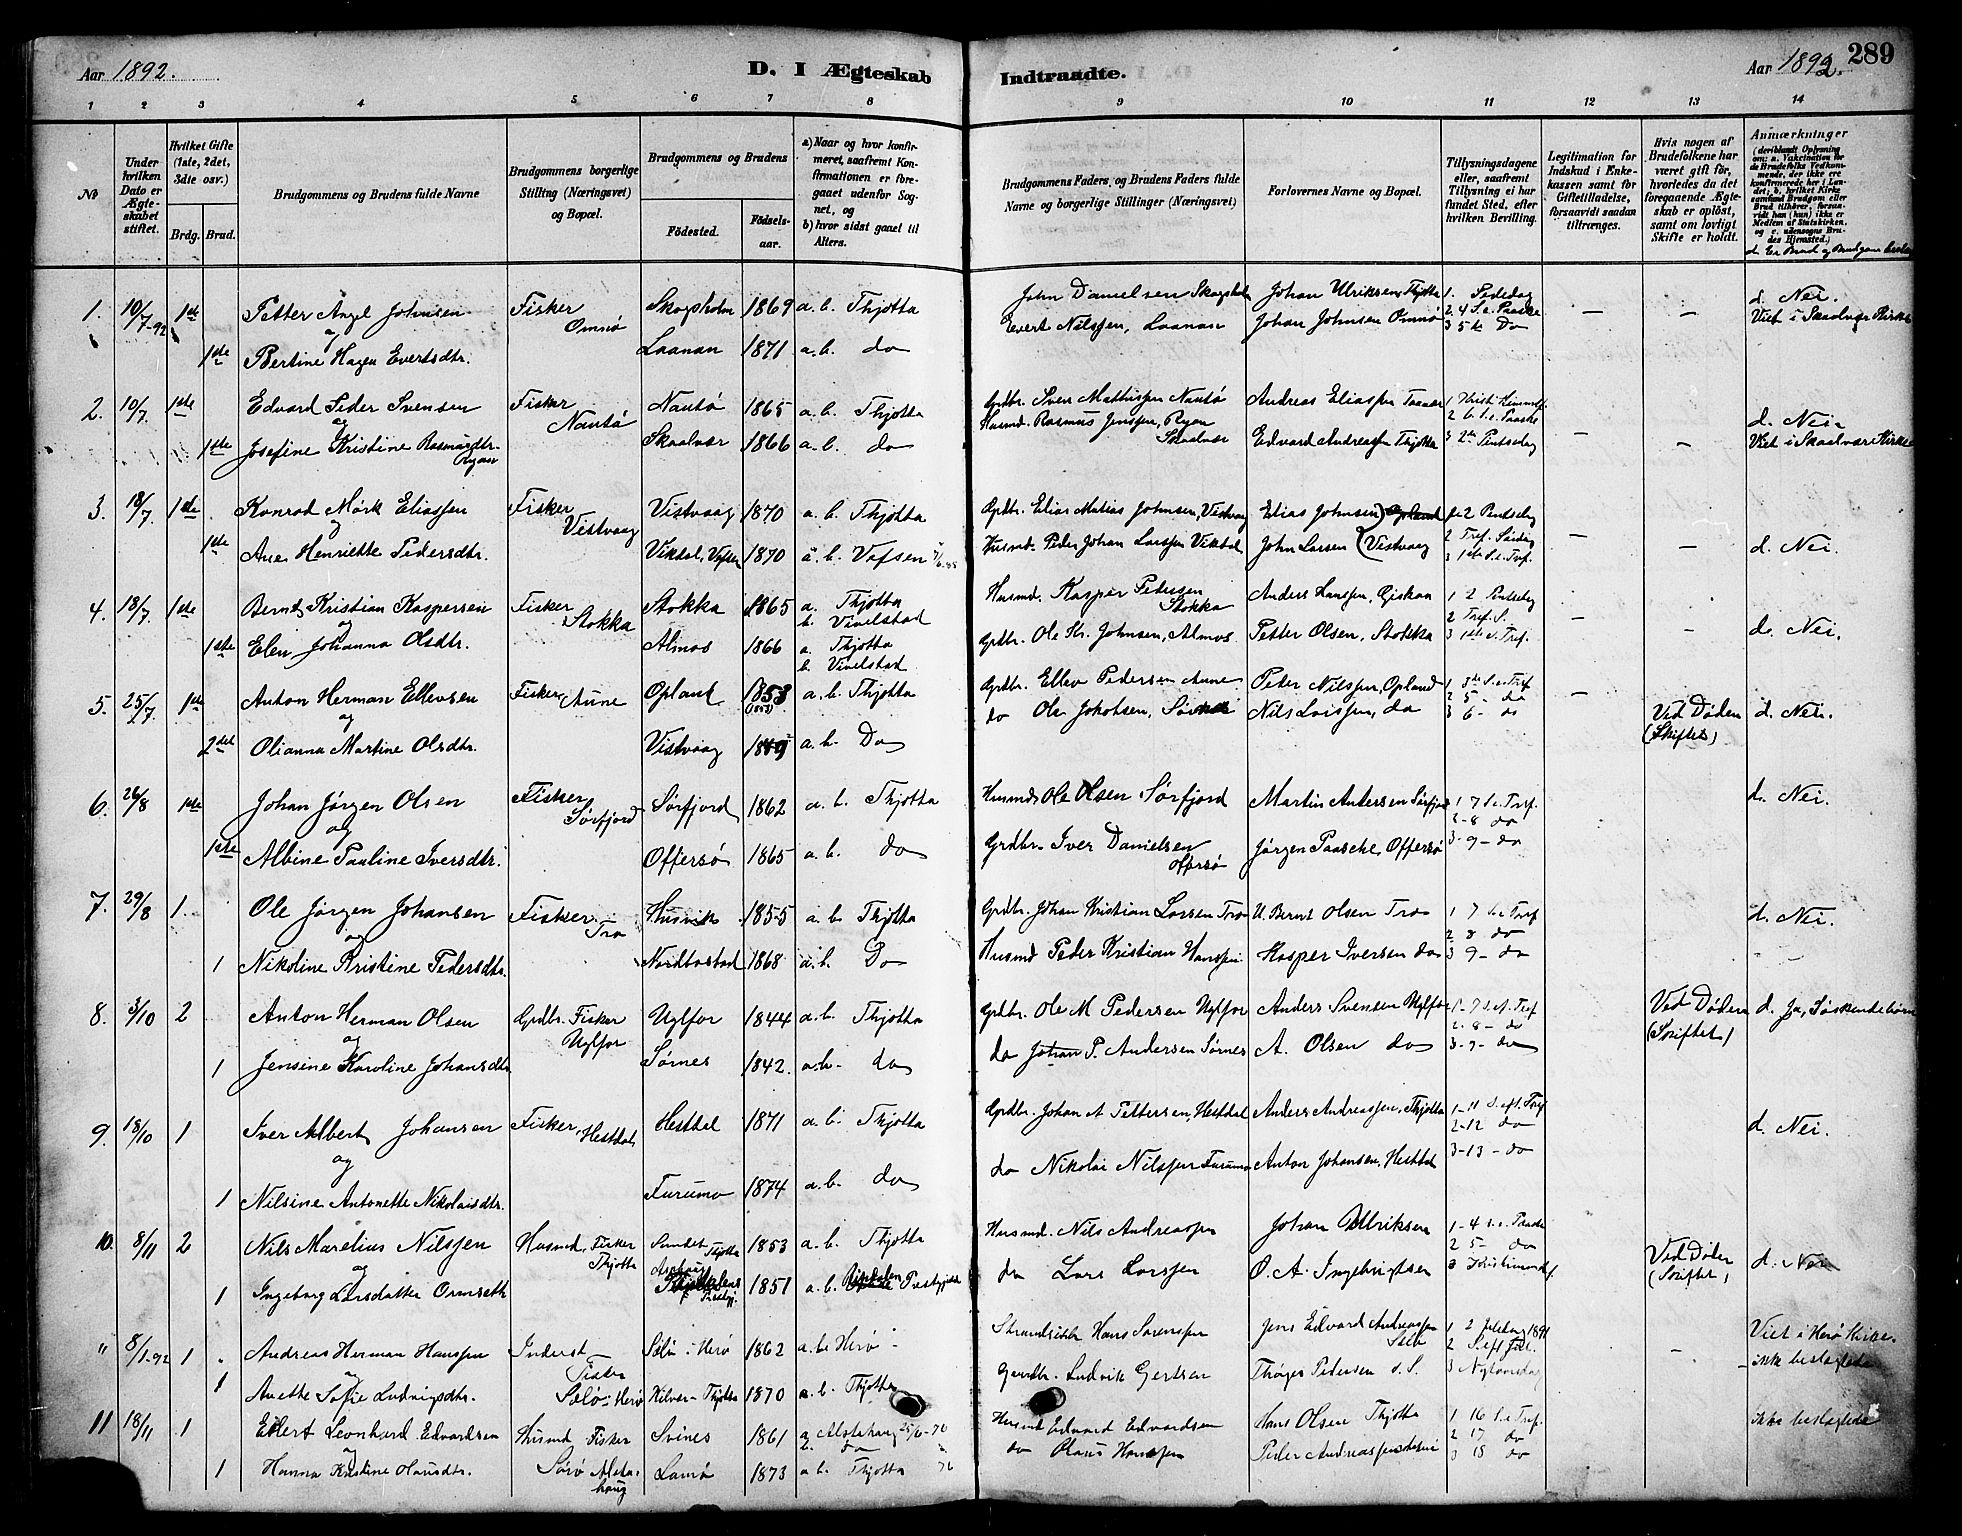 289
Aar 1892.
D. I Ægteskab
Indtraadte.
Aar 1892.
1 2 3 4 5 6 7 8 9 10 11 12 13 14
No
Under hvilken Dato er Ægteskabet stiftet.
Hvilket Gifte (1ste, 2det, 3die osv.)
Brdg. Brud.
Brudgommens og Brudens fulde Navne
Brudgommens borgerlige Stilling (Næringsvei) og Bopæl.
Brudgommens og Brudens
Fødested.
Fødselsaar.
a) Naar og hvor konfirmeret, saafremt Konfirmationen er foregaaet udenfor Sognet, og
b) hvor sidst gaaet til Alters.
Brudgommens Faders og Brudens Faders fulde Navne og borgerlige Stillinger (Næringsvei)
Forlovernes Navne og Bopæl.
Tillysningsdagene eller, saafremt Tillysning ei har fundet Sted, efter hvilken Bevilling.
Legitimation for Indskud i Enkekassen samt for Giftetilladelse, forsaavidt saadan tiltrænges.
Hvis nogen af Brudefolkene har været gift før, hvorledes da det foregaaende Ægteskab er opløst, samt om lovligt Skifte er holdt.
Anmærkninger (deriblandt Oplysning om: a. Vakcination for de Brudefolks Vedkommende, der ikke ere konfirmerede her i Landet; b. hvilket Kirkesamfund Brudgom eller Brud tilhører, forsaavidt han (hun) ikke er Medlem af Statskirken, og c. udensogns Brudes Hjemsted.)
1. 10/7-92 1ste Petter Angel Johnsen Fisker Omnø Skogsholm 1869 a. b. Thjøtta John Danielsen Skogsholm Johan Ulriksen, Thjøtta 1. Bededag d. Nei.
og Evert Nilssen, Laanan Johan Johnsen Omnø 2. 4 S. e. Paaske 3 5te Do Viet i Skaalvær Kirke
1ste Bertine Hagen Evertsdtr. Laanan 1871 a. b. do
2. 10/7. 1ste Edvard Peder Svensen Fisker Nautø Nautø 1865 a. b. Thjøtta Grdbr. Sven Mathissen Nautø Andreas Eliassen 1 Kristi Himmelf. 2 6 S. e. Paaske d. Nei.
og Husmd. Rasmus Jenssen, Ryen Skaalvær
1ste Josefine Kristine Rasmusdtr. Skaalvær 1866 a. b. do Edvard Andreassen Thjøtta 3 2den Pintsedag Viet i Skaalvær Kirke
3. 18/7. 1ste Konrad Mørk Eliassen Fisker Vistvaag Vistvaag 1870 a. b. Thjøtta Grdbr. Elias Matias Johnsen, Vistvaag Elias Johnsen 2 Pintsedag
og
1ste Ane Henriette Pedersdtr. Vikdal, Vefsen 1870 a. b. Vefsen Husmd. Peder Johan Larssen Vikdal John Larsen Vistvaag 2 Tref. Søndag 3 1ste S. e. Tref. d. Nei.
4. 18/7 1ste Bernt Kristian Kaspersen Fisker Stokka Stokka 1865 a. Thjøtta b. Vivelstad Husmd. Kasper Pedersen Stokka Anders Hanssen, Giskan 1 2 Pintsedag 2 Tref. S. d. Nei.
og
1ste Elen Johanna Olsdtr. Almos 1866 a. Thjøtta b. Vivelstad Grdbr. Ole Kr. Johnsen, Almos Petter Olsen, Stokka 3 1ste S. e. Tref.
5. 25/7. 1ste Anton Herman Ellevsen Fisker, Aune Opland 1853 (1853) a. b. Thjøtta Grdbr. Ellev Pedersen Aune Peder Nilssen, Opland 1 3de S. e. Tref 2 5- do
og do Ole Jakobsen, Nils Larssen, do 3 6- do Ved Døden (Skiftet) d. Nei.
2det Olianna Martine Olsdtr. Vistvaag a. b. Do
6. 26/8 1ste Johan Jørgen Olsen Fisker Sørfjord Sørfjord 1862 a. b. Thjøtta Husmd. Ole Olsen Sørfjord Martin Andersen Sørfjord 1 7 S. e. Tref. 2-8 do d. Nei.
og
1ste Albine Pauline Iversdtr. Offersø 1865 a. b. do Grdbr. Iver Danielsen Offersø Jørgen Paasche, Offersø 3-9- do
7. 29/8 1. Ole Jørgen Johansen Fisker Tro Husvik 1855 a. b. Thjøtta Grdbr. Johan Kristian Larsen Tro U. Bernt Olsen Tro 1 7 S. e Tref 2 8 do d. Nei.
og
1 Nikoline Kristine Pedersdtr. Nordtostad 1868 a. b. Do Husmd Peder Kristian Hanssen Kasper Iversen do 3 9- do
8. 3/10 2 Anton Herman Olsen Grdbr. Fisker Uglfor Uglfor 1844 a. b. Thjøtta Grdbr. Ole M. Pedersen Uglfor Anders Svensen Uglfor 1-7 S. e. Tref 2-8- do Ved Døden (Skiftet) d. Ja, Søskendebørn
og
1 Jensine Karoline Johansdtr. Sørnes 1842. a. b. do do Johan P. Andersen Sørnes A. Olsen do 3-9- do
9. 18/10 1 Iver Albert Johansen Fisker, Hestdal Hestdal 1871 a. b. Thjøtta Grdbr. Johan A Pettersen, Hestdal Anders Andreassen, Thjøtta 1-11 S. eft. Tref 2-12 do d. Nei.
og
1 Nilsine Antonette Nikolaisdtr. Furumo 1874 a. b. do do Nikolai Nilssen Furumo Anton Johansen, Hestdal 3-13- do
10. 8/11 2 Nils Marelius Nilssen Husmd. Fisker Thjøtta Sundet Thjøtta 1853 a. b. Thjøtta Husmd. Nils Andreassen Johan Ulriksen 1-4 S. e. Paaske 2 5- do Ved Døden (Skiftet) d. Nei
og
1 Ingeborg Larsdatter Ormseth 1851 a. b. do Lars Larssen O. A. Ingebrigtsen 3
" 8/1-92 1 Andreas Herman Hanssen Inderst Fisker Sælø i Herø Sælø i Herø 1862 a. b. Herø Strandsidder Hans Sørenssen Jens Edvard Andreassen 1 2 Juledag 1891 2 S. eft Jul. Viet i Herø Kirke.
og ikke beslægtede
1 Anette Sofie Ludvigsdtr. Hilver Thjøtta 1870 a. b. Thjøtta Gaardbr. Ludvik Gertsen Thøger Pedersen d. S. 3 Nytaarsdag
11 18/11 1 Eilert Leonhard Edvardsen Husmd Fisker Svines 1861 a. Alstahaug 25/6-76 b. do Husmd Edvard Edvardsen Hans Olsen Thjøtta 1 16 S. e Tref. 2 17 do ikke beslægtede
og Sørø Alstahaug
1 Hanna Kristine Klausdtr. Lamø 1873 a. b. Thjøtta do Klaus Hanssen Peder Andreassen 3 18 do